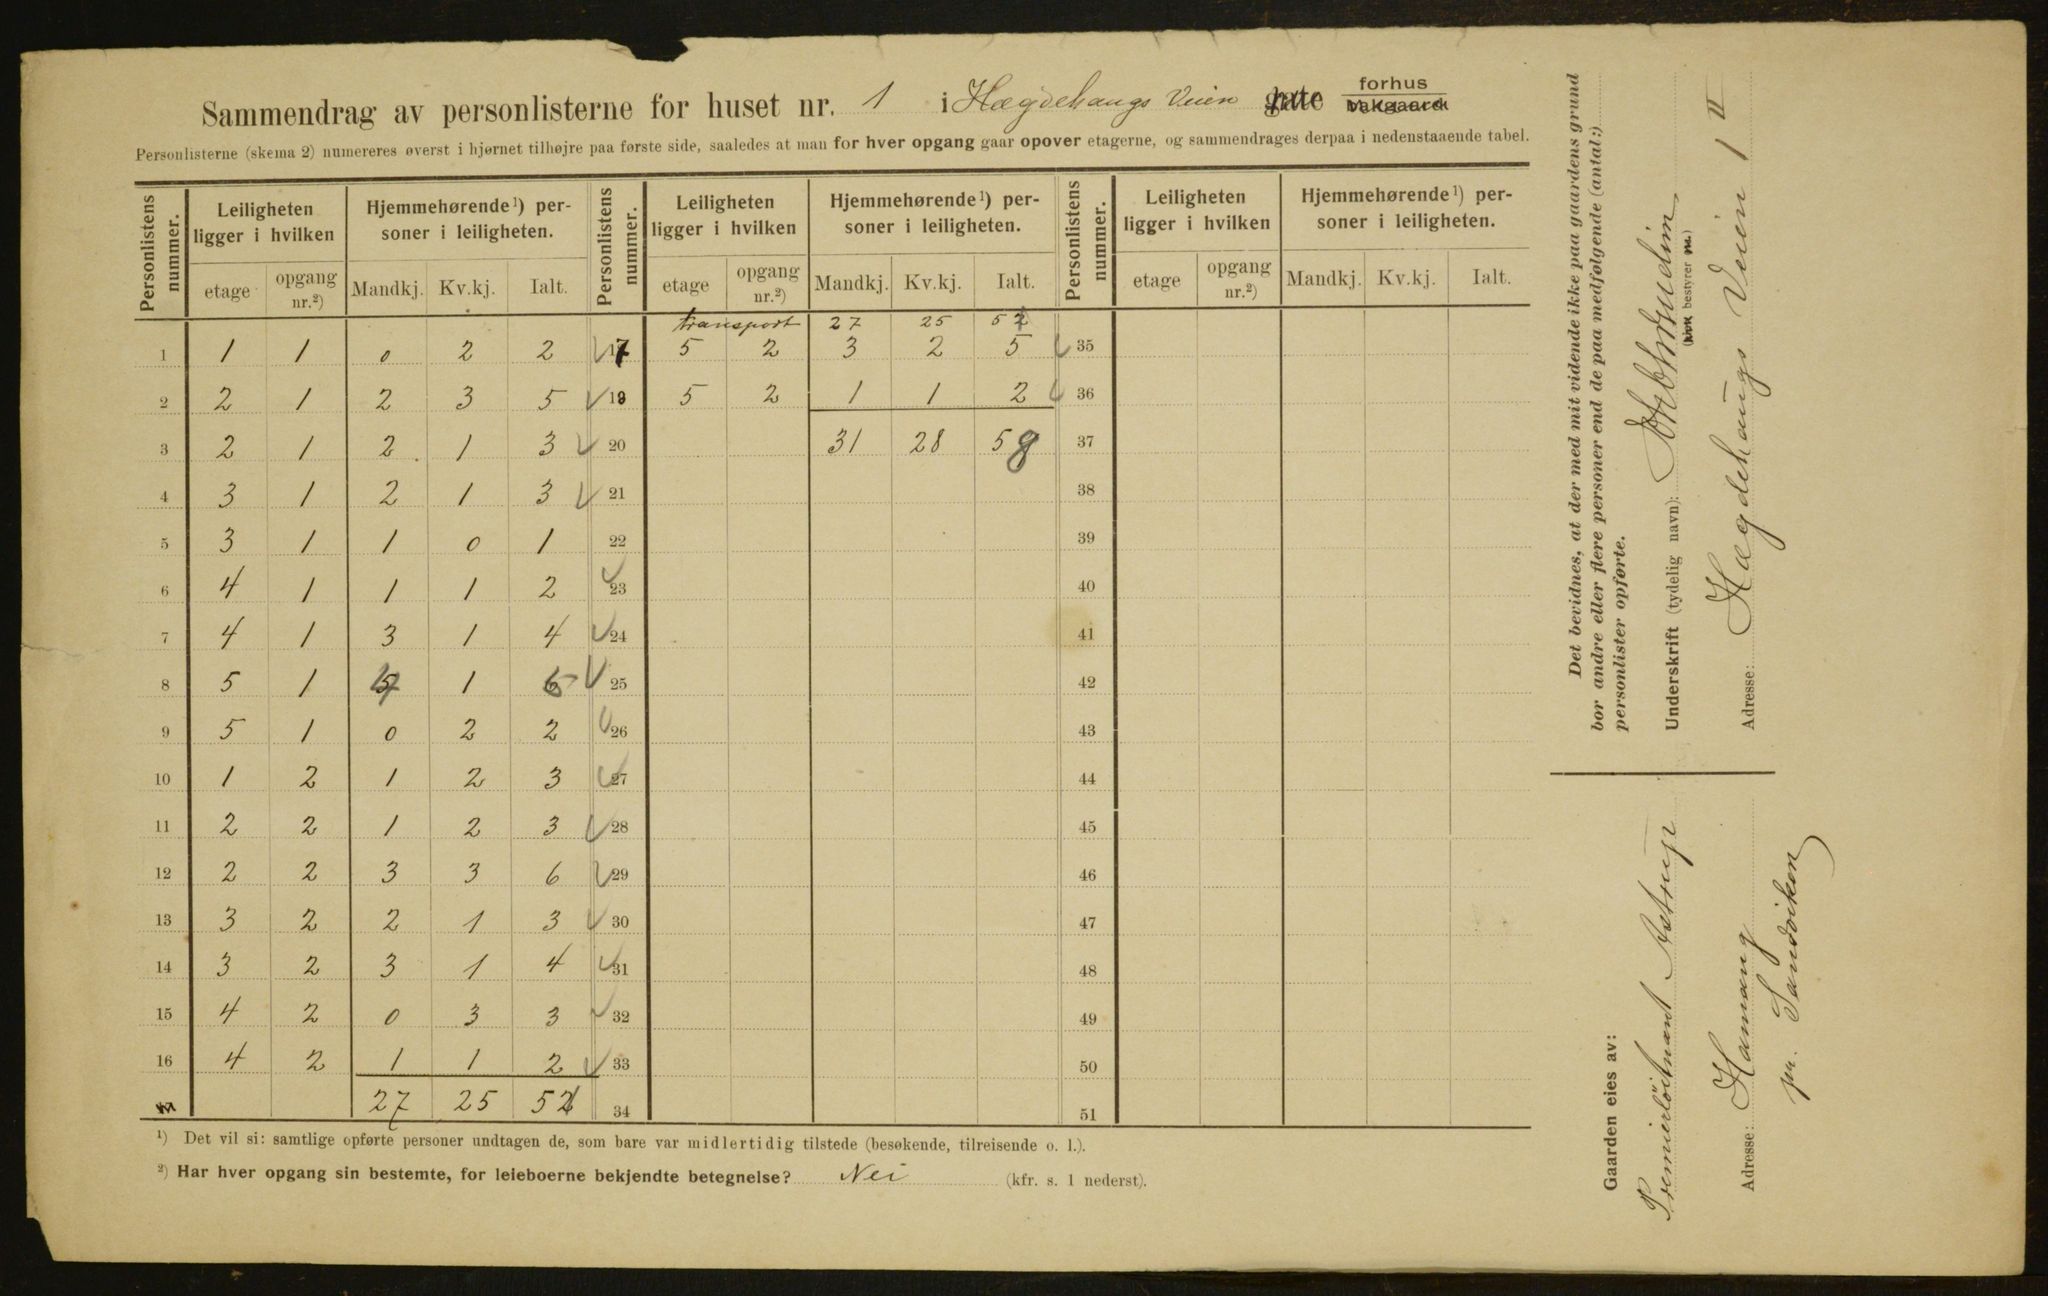 Sammendrag av personlisterne for huset nr. 1 i Hægdehaugs Veien gate forhus bakgaard
Personlisterne (skema 2) numereres øverst i hjørnet tilhøjre paa første side, saaledes at man for hver opgang gaar opover etagerne, og sammendrages derpaa i nedenstaaende tabel.
Personlistens nummer. Leiligheten ligger i hvilken Hjemmehørende¹) personer i leiligheten. Personlistens nummer. Leiligheten ligger i hvilken Hjemmehørende¹) personer i leiligheten. Personlistens nummer. Leiligheten ligger i hvilken Hjemmehørende¹) personer i leiligheten.
etage opgang nr.²) Mandkj. Kv.kj. Ialt. etage opgang nr.²) Mandkj. Kv.kj. Ialt. etage opgang nr.²) Mandkj. Kv.kj. Ialt.
transport 27 25 52
1 1 1 0 2 2 17 5 2 3 2 5 35
2 2 1 2 3 5 18 5 2 1 1 2 36
3 2 1 2 1 3 20 31 28 58 37
4 3 1 2 1 3 21 38
5 3 1 1 0 1 22 39
6 4 1 1 1 2 23 40
7 4 1 3 1 4 24 41
8 5 1 4 1 5 25 42
9 5 1 0 2 2 26 43
10 1 2 1 2 3 27 44
11 2 2 1 2 3 28 45
12 2 2 3 3 6 29 46
13 3 2 2 1 3 30 47
14 3 2 3 1 4 31 48
15 4 2 0 3 3 32 49
16 4 2 1 1 2 33 50
17 27 25 52 34 51
¹) Det vil si: samtlige opførte personer undtagen de, som bare var midlertidig tilstede (besøkende, tilreisende o. l.).
²) Har hver opgang sin bestemte, for leieboerne bekjendte betegnelse? Nei (kfr. s. 1 nederst).
Det bevidnes, at der med mit vidende ikke paa gaardens grund
bor andre eller flere personer end de paa medfølgende (antal:)
personlister opførte.
Underskrift (tydelig navn):
bestyrer
Adresse: Hægdehaugs Veien 1 II
Gaarden eies av:
Premierløitnant Astrup
Adresse: Hamang
pr. Sandviken